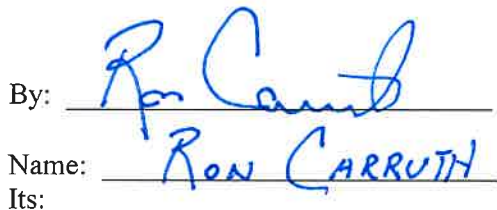 By: Ron Carruth
Name: RON CARRUTH
Its: